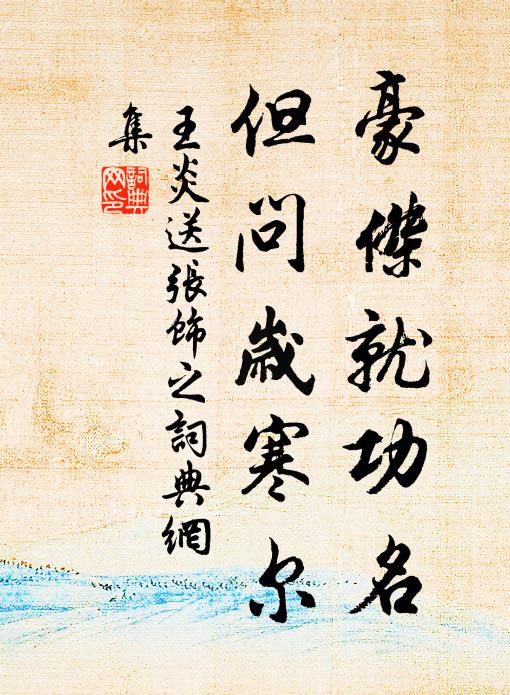 豪傑就功名
但問歲寒尔
王炎送張飾之詞典網
集
詞典
网印